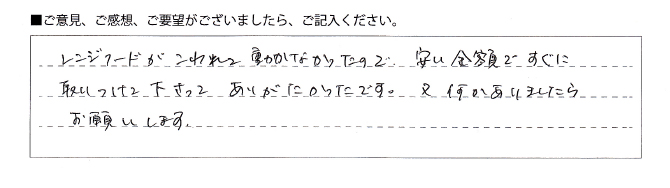 ■ご意見、ご感想、ご要望がございましたら、ご記入ください。
レンジフードが こわれて 動かなかったので、安い金額ですぐに
取りつけて下さって ありがたかったです。又 何かありましたら
お願いします。